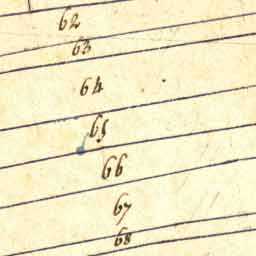 62
63
64
65
66
67
68